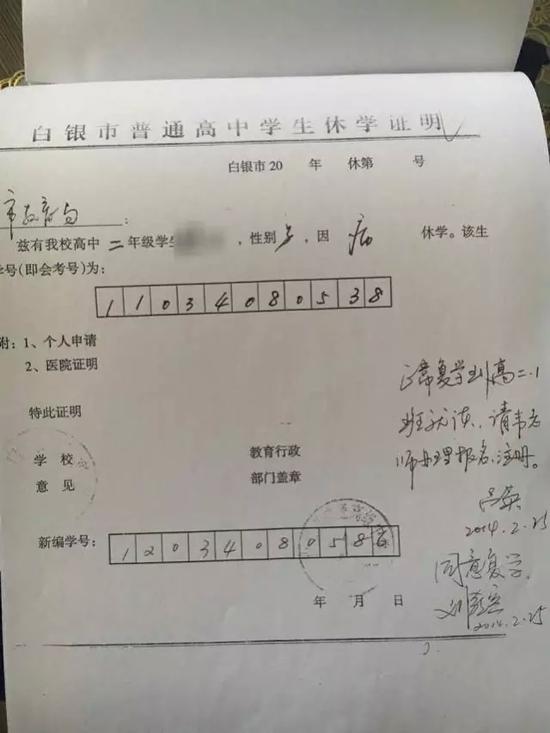 白银市普通高中学生休学证明
白银市20 年 休第 号
市教育局:
兹有我校高中二年级学生 ，性别 ，因病 休学。该生
学号(即会考号)为:
11034080538
附: 1、个人申请
2、医院证明
特此证明
学校 教育行政
意见 部门盖章
新编学号: 1203408058
年 月 日
复学到高二.1
班就读，请韦老
师办理报名、注册。
2014.2.25
同意复学.
2014.2.25